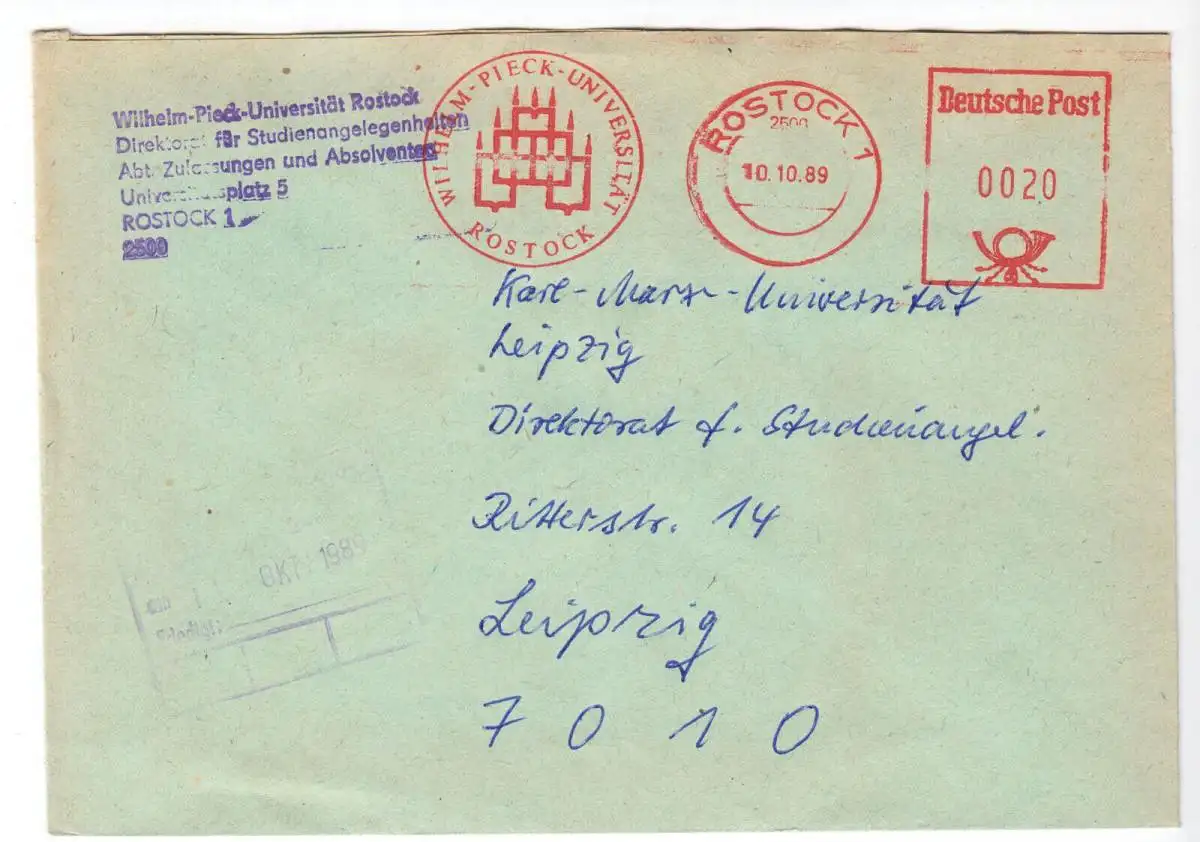 Wilhelm-Pieck-Universität Rostock
Direktorat für Studienangelegenheiten
Abt. Zulassungen und Absolventen
Universitätsplatz 5
ROSTOCK 1
2500
WILHELM-PIECK-UNIVERSITÄT
ROSTOCK
ROSTOCK 1
2500
10.10.89
Deutsche Post
0020
Karl-Marx-Universität
Leipzig
Direktorat f. Studienangel.
Ritterstr. 14
Leipzig
7010
OKT. 1989